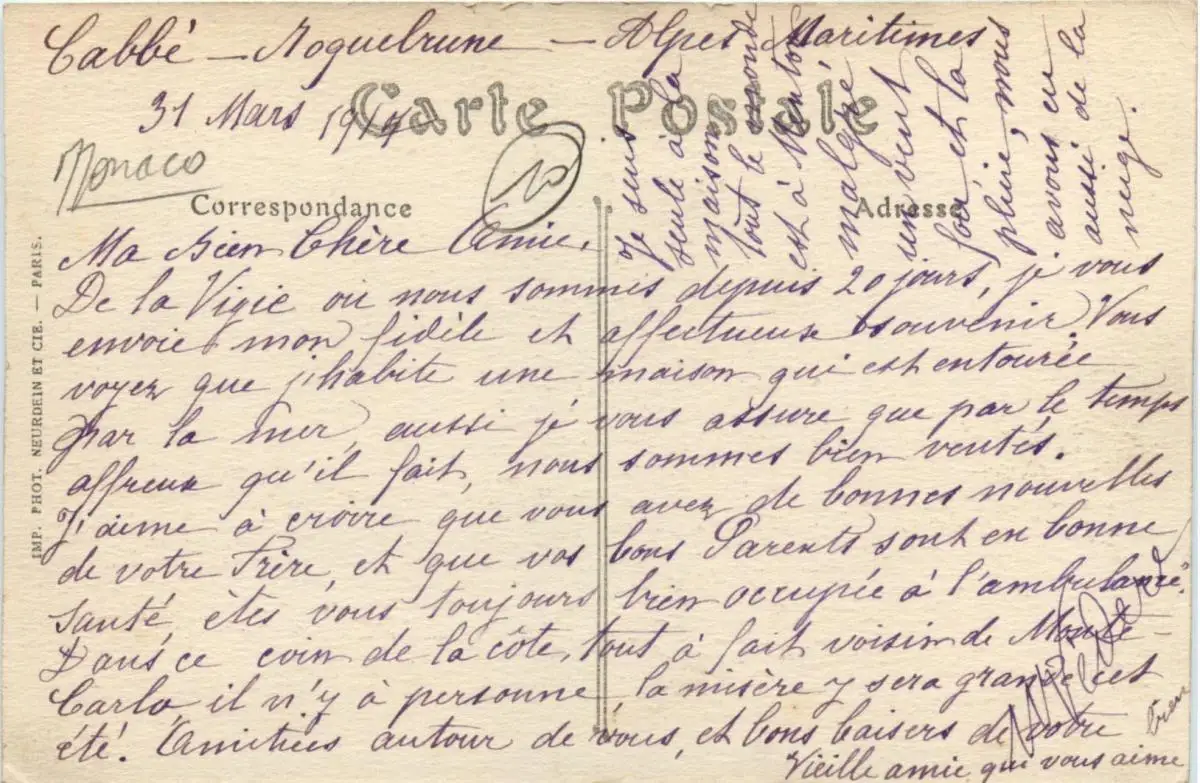 Cabbé — Roquebrune — Alpes Maritimes
31 Mars 191
Carte Postale
Monaco
Correspondance
Adresse
Ma Bien Chère Amie.
De la Vigie où nous sommes depuis 20 jours, je vous
envoie mon fidèle et affectueux souvenir. Vous
voyez que j'habite une maison qui est entourée
par la mer, aussi je vous assure que par le temps
affreux qu'il fait, nous sommes bien ventés.
J'aime à croire que vous avez de bonnes nouvelles
de votre Frère, et que vos bons Parents sont en bonne
santé êtes vous toujours bien occupée à l'ambulance.
Dans ce coin de la côte, tout à fait voisin de Monte-
Carlo, il n'y à personne, la misère y sera grande cet
été. Amitiées autour de vous, et bons baisers de votre
Vieille amie qui vous aime
bien
Je suis
seule à la
maison
tout le monde
est à Menton
malgré
un vent
fou et la
pluie, nous
avons eu
aussi de la
neige.
IMP. PHOT. NEURDEIN ET CIE. — PARIS.